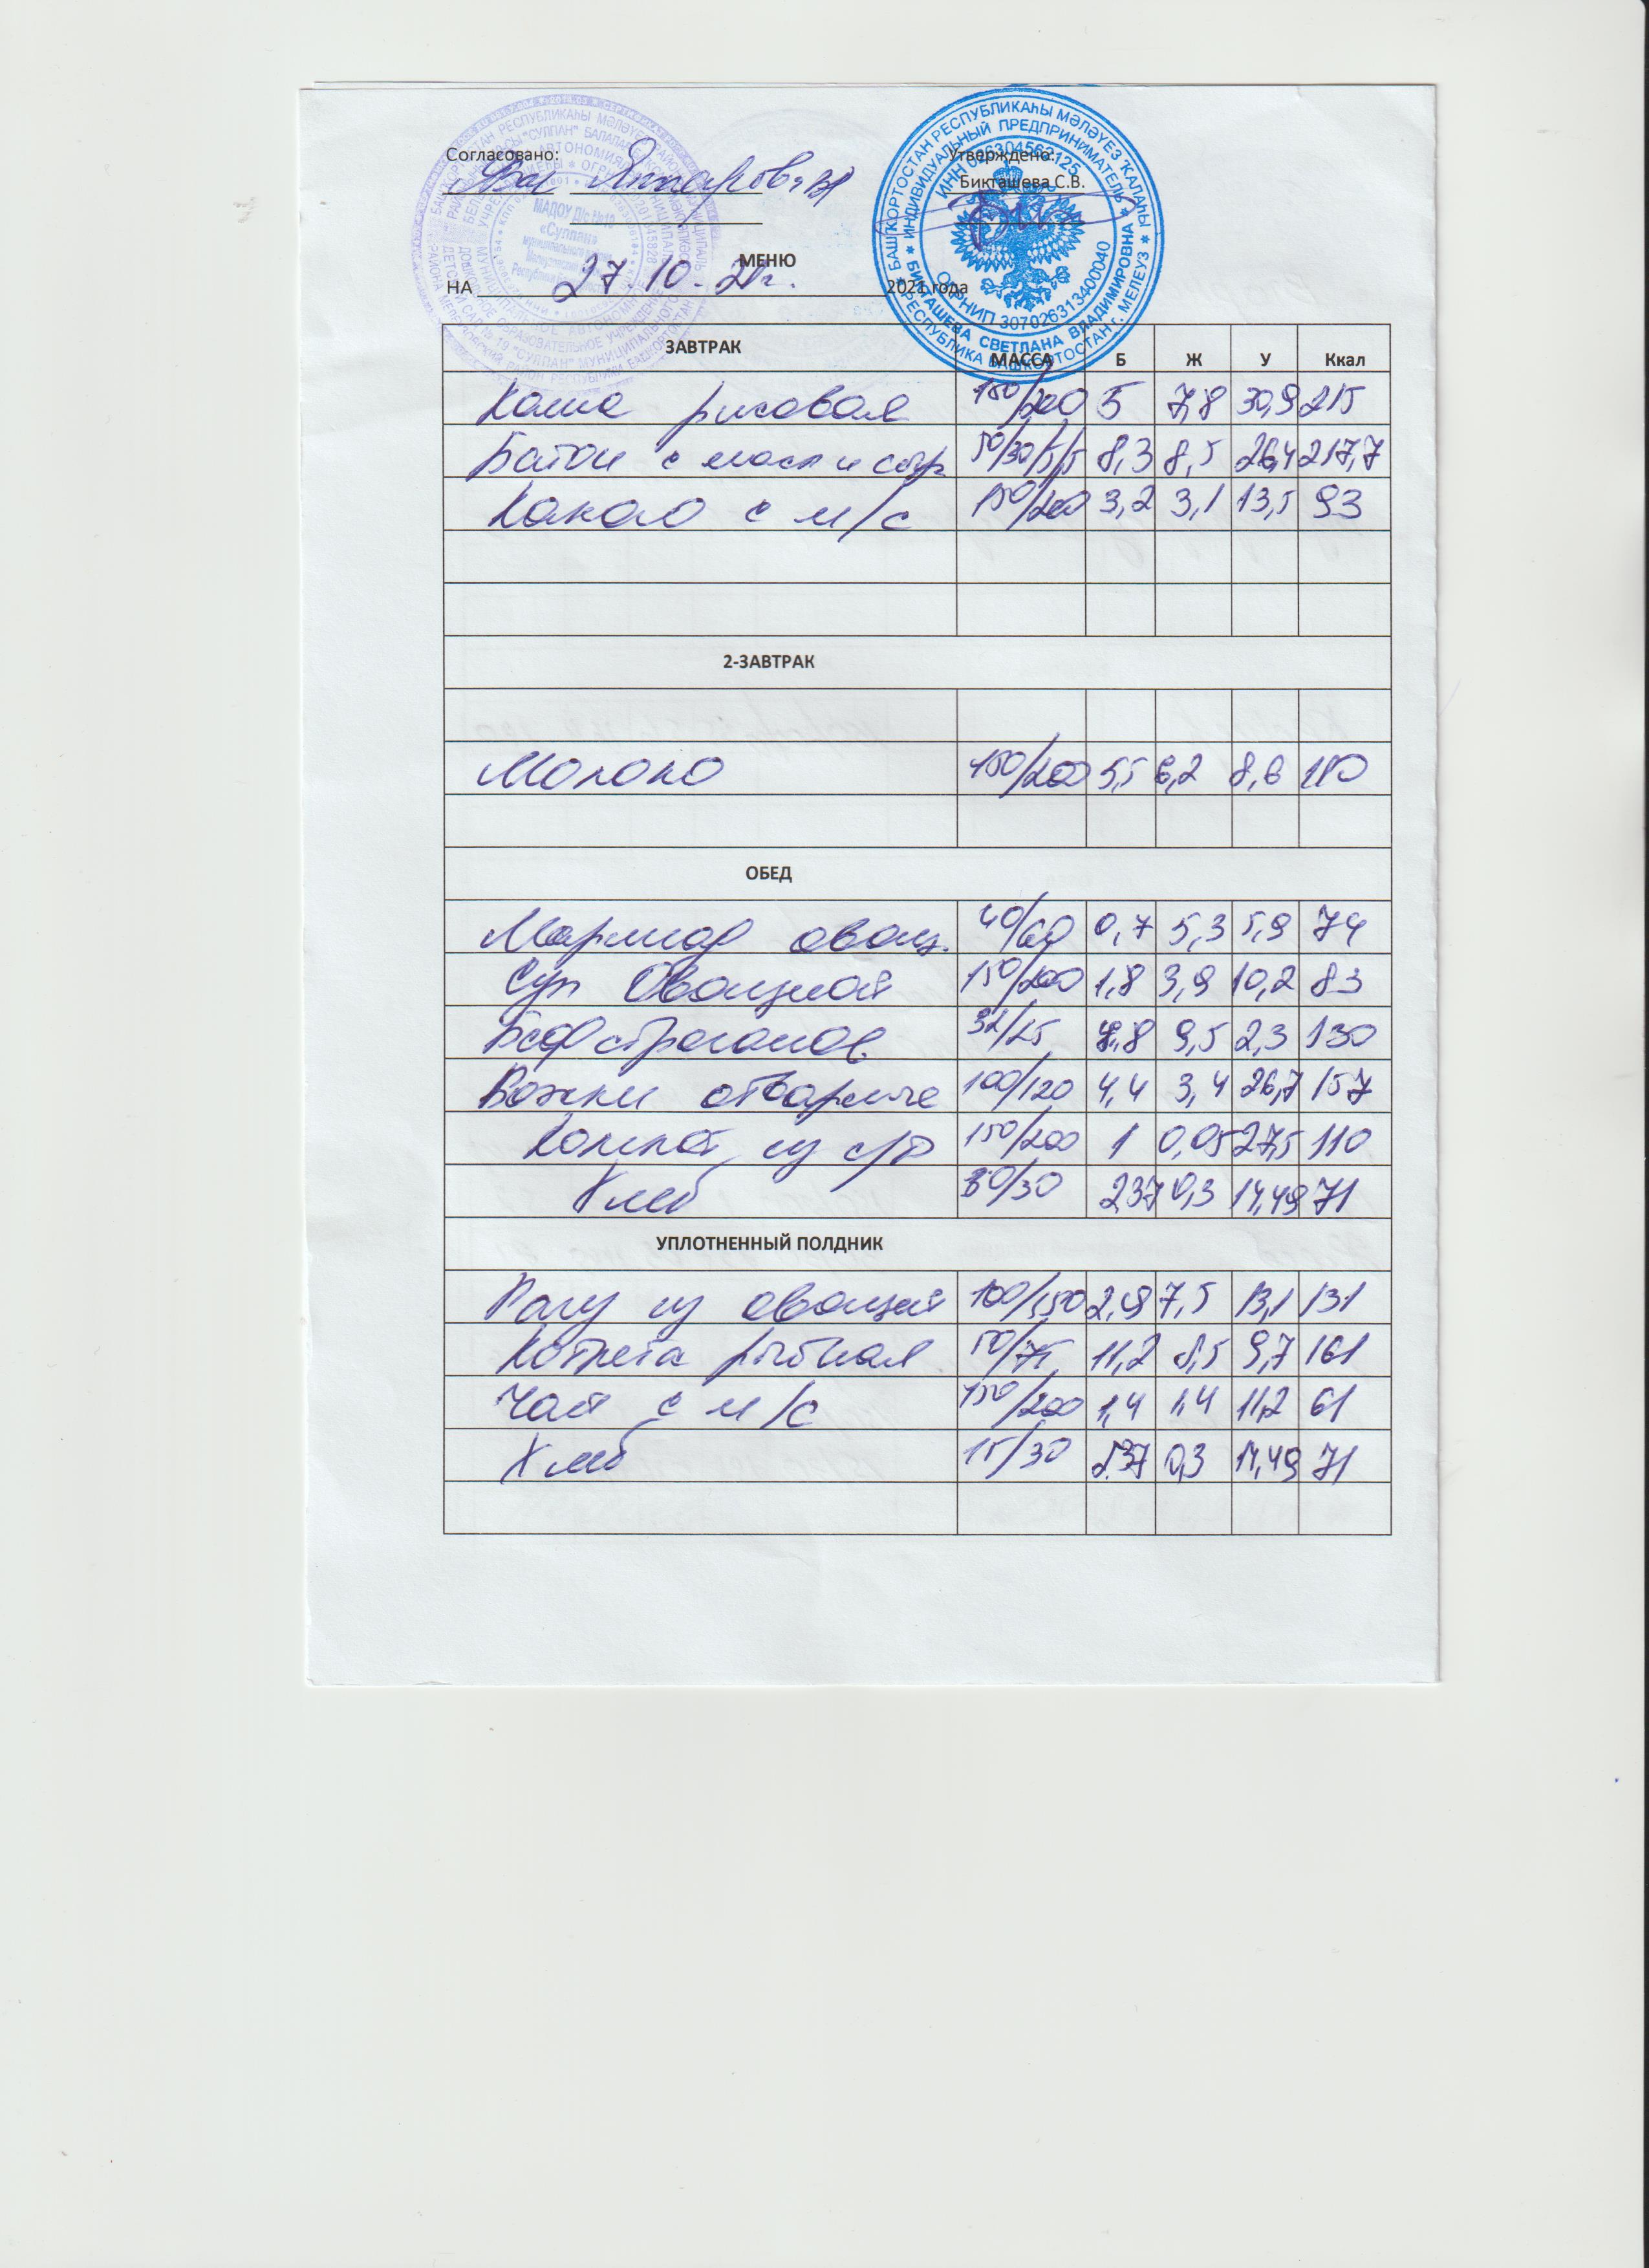 Согласовано: Утверждено:
Бикташева С.В.
БАШҠОРТОСТАН РЕСПУБЛИКАҺЫ МӘЛӘҮЕЗ ҠАЛАҺЫ
РЕСПУБЛИКА БАШКОРТОСТАН г. МЕЛЕУЗ
ИНДИВИДУАЛЬНЫЙ ПРЕДПРИНИМАТЕЛЬ
БИКТАШЕВА СВЕТЛАНА ВЛАДИМИРОВНА
ИНН 026304562125
ОГРНИП 307026313400040
МАДОУ Д/с №19
«Сулпан»
МЕНЮ
НА 27.10.21г. 2021 года
ЗАВТРАК МАССА Б Ж У Ккал
Каша рисовая 150/200 5 7,8 30,9 215
Батон с масл и сыр 50/30/5/5 8,3 8,5 26,4 217,7
Какао с м/с 150/200 3,2 3,1 13,5 93
2-ЗАВТРАК
Молоко 150/200 5,5 6,2 8,6 110
ОБЕД
Маринад овощ. 40/60 0,7 5,3 5,9 74
Суп Овощной 150/200 1,8 3,9 10,2 83
Бефстроганов 9,5 2,3 130
Рожки отварные 100/120 4,4 3,4 26,7 157
Компот из с/ф 150/200 1 0,05 27,5 110
Хлеб 30/30 2,37 0,3 14,49 71
УПЛОТНЕННЫЙ ПОЛДНИК
Рагу из овощей 100/150 2,9 7,5 13,1 131
Котлета рыбная 50/75 11,2 8,5 9,7 161
Чай с м/с 150/200 1,4 1,4 11,2 61
Хлеб 15/30 2.37 0,3 14,49 71